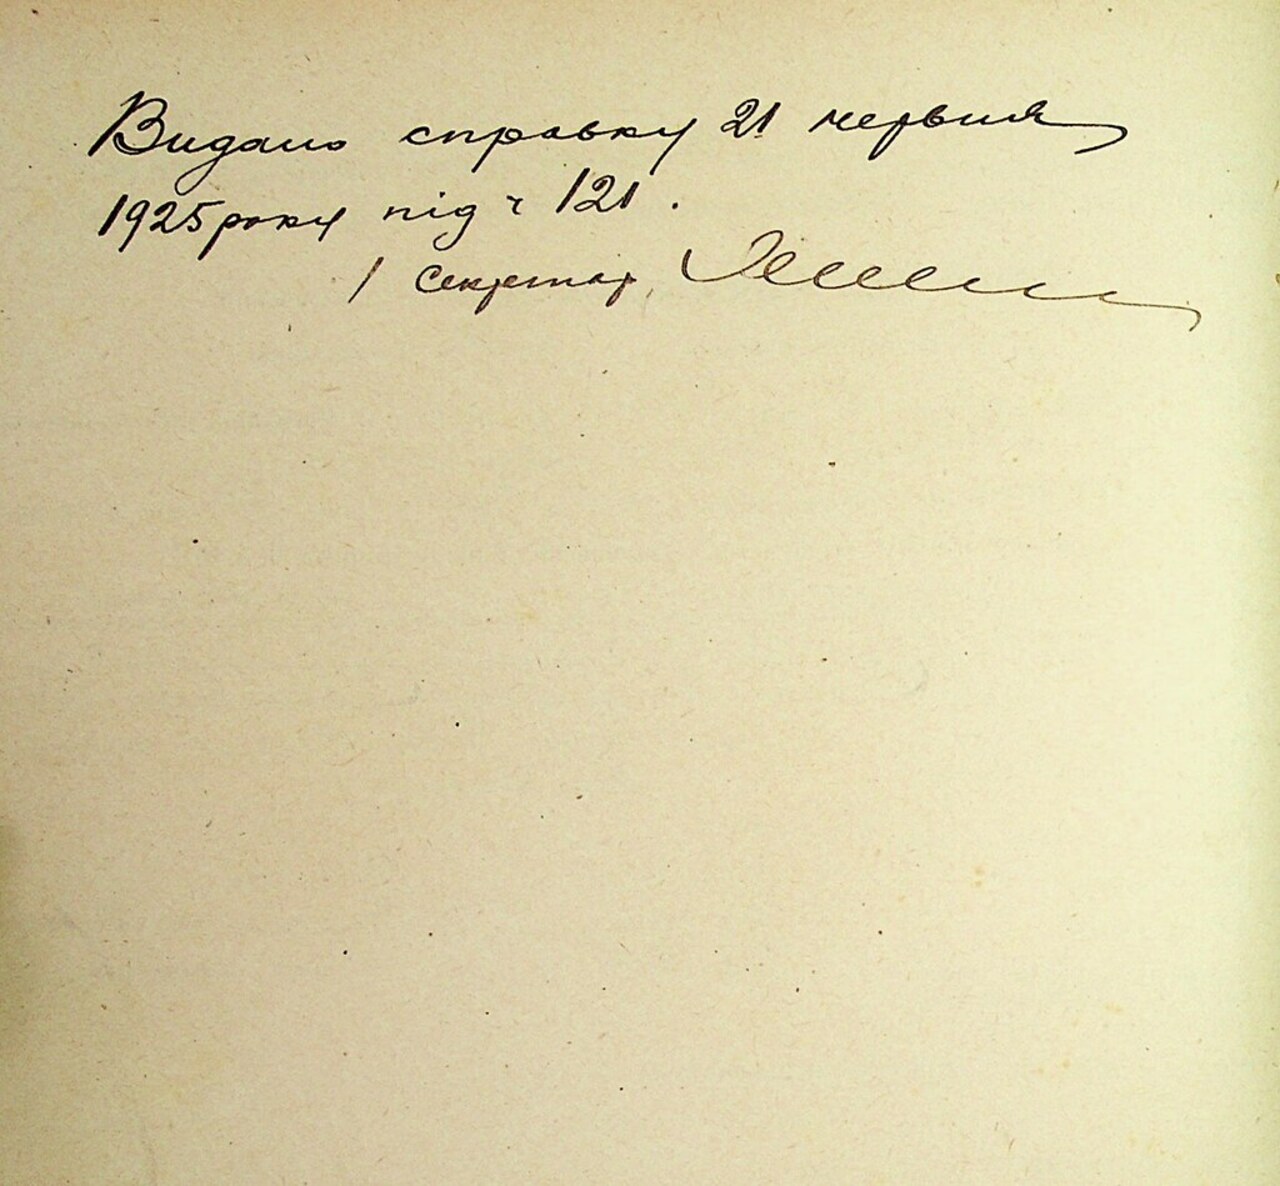 Видано справку 21 червня
1925 року під ч 121.
/ Секретар